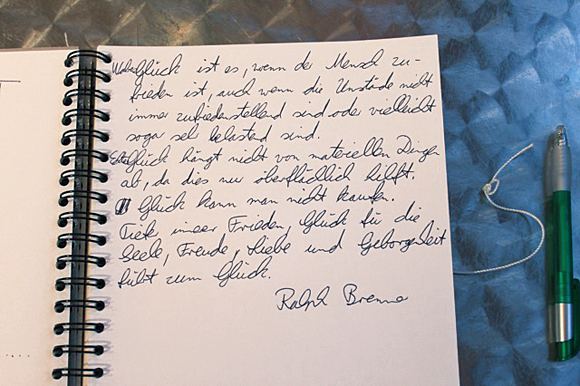 Wahres Glück ist es, wenn der Mensch zu-
frieden ist, auch wenn die Umstände nicht
immer zufriedenstellend sind oder vielleicht
sogar sehr belastend sind.
Echtes Glück hängt nicht von materiellen Dingen
ab, da dies nur oberflächlich hilft.
Glück kann man nicht kaufen.
Tiefer innerer Frieden, Glück für die
Seele, Freude, Liebe und Geborgenheit
führt zum Glück.
Ralph Brenner